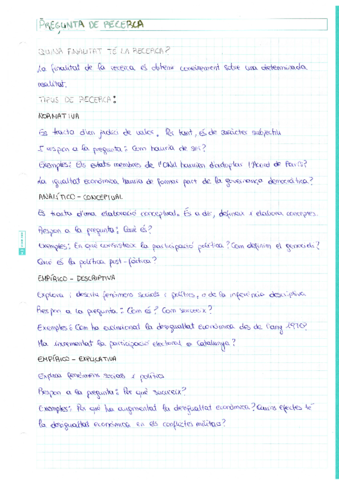 PREGUNTA DE RECERCA
QUINA FINALITAT TÉ LA RECERCA?
La finalitat de la recerca és obtenir coneixement sobre una determinada
realitat.
TIPUS DE RECERCA:
NORMATIVA
Es tracta d'un judici de valor. Per tant, és de caràcter subjectiu
I respon a la pregunta: Com hauria de ser?
Exemples: Els estats membres de l'ONU haurien d'adoptar l'Acord de París?
La igualtat econòmica hauria de formar part de la governança democràtica?
ANALÍTICO - CONCEPTUAL
Es tracta d'una elaboració conceptual. És a dir, definir i elaborar conceptes.
Respon a la pregunta: Què és?
Exemples: En què consisteix la participació política? Com definim el
Què és la política post-fàctica?
EMPÍRICO - DESCRIPTIVA
Explora i descriu fenòmens socials i polítics, a de la inferència descriptiva.
Respon a la pregunta: Com és? Com succeeix?
Exemples: Com ha evolucionat la desigualtat econòmica des de l'any 1970?
Ha incrementat la participació electoral a Catalunya?
EMPÍRICO - EXPLICATIVA
Explica fenòmens socials i polítics
Respon a la pregunta: Per què succeeix?
Exemples: Per què ha augmentat la desigualtat econòmica? Quins efectes té
la desigualtat econòmica en els conflictes militars?